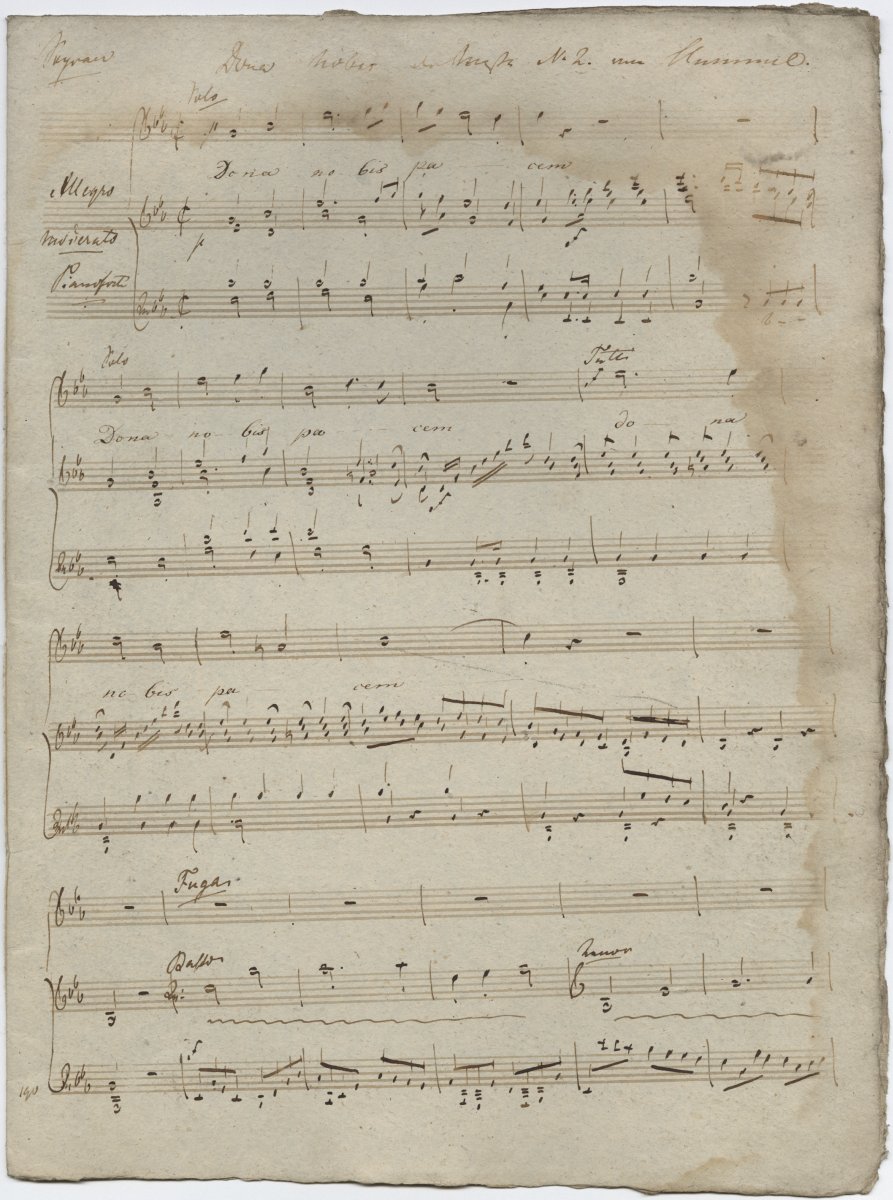 Sopran Dona Nobis der Messe No 2. von Hummel.
Solo
Dona no bis pa cem
Allegro
moderato
Pianoforte
Solo Tutti
Dona no bis pa cem do na
no bis pa cem
Fuga
Basso Tenor